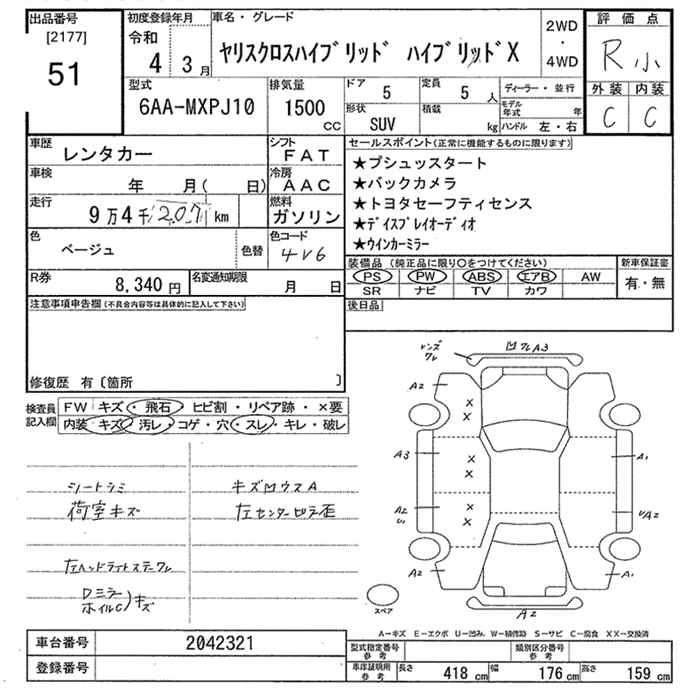 出品番号
[2177]
51
初度登録年月
令和
4年 3月
車名・グレード
ヤリスクロスハイブリッド ハイブリッドX
2WD
・
4WD
評価点
R 小
外装 内装
C C
型式
6AA-MXPJ10
排気量
1500
CC
ドア
5
定員
5
人
ディーラー・並行
形状
SUV
積載
kg
モデル年式
年
ハンドル 左・右
車歴
レンタカー
シフト
FAT
車検
年 月( 日)
冷房
AAC
走行
9万4千/207/km
燃料
ガソリン
色
ベージュ
色替
色コード
4V6
R券
8,340円
名変通知期限
月 日
セールスポイント(正常に機能するものに限ります)
★プシュッスタート
★バックカメラ
★トヨタセーフティセンス
★ディスプレイオーディオ
★ウインカーミラー
装備品 (純正品に限り○をつけてください)
PS PW ABS エアB AW
SR ナビ TV カワ
新車保証書
有・無
注意事項申告欄(不具合内容等は具体的に記入して下さい)
後日品
修復歴 有〔箇所 〕
検査員
記入欄
FW キズ・飛石・ヒビ割・リペア跡・×要
内装・キズ・汚レ・コゲ・穴・スレ・キレ・破レ
シートシミ
荷室キズ
左ヘッドライトステーワレ
Dミラー
ホイルC)キズ
キズ凹ウスA
左センターピラ歪
レンズ
ワレ
凹ワレA3
A2
A3
A2
U
A2
A1
UA2
A1
A2
スペア
A-キズ E-エクボ U-凹み W-補修跡 S-サビ C-腐食 XX-交換済
車台番号
2042321
登録番号
型式指定番号
参考
類別区分番号
参考
車庫証明用
参考
長さ
418 cm
幅
176 cm
高さ
159 cm